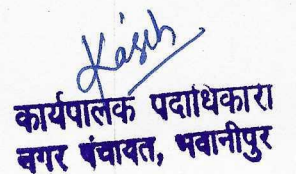 कार्यपालक पदाधिकारा
नगर पंचायत, भवानीपुर